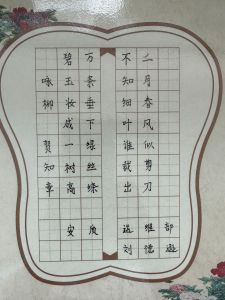 咏柳 贺知章
碧玉妆成一树高
万条垂下绿丝绦
不知细叶谁裁出
二月春风似剪刀
安